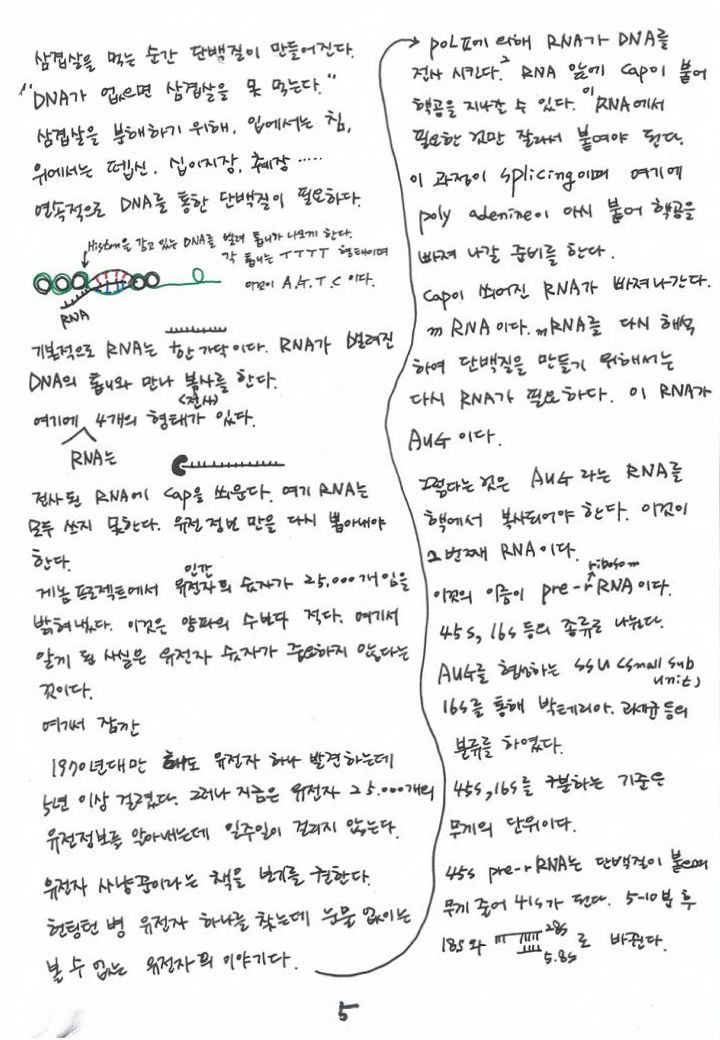 삼겹살을 먹는 순간 단백질이 만들어진다.
"DNA가 없으면 삼겹살을 못 먹는다."
삼겹살을 분해하기 위해, 입에서는 침,
위에서는 펩신, 십이지장, 췌장 .....
연속적으로 DNA를 통한 단백질이 필요하다.
Histon을 감고 있는 DNA를 벌려 톱니가 나오게 한다.
각 톱니는 TTTT 형태이며
이것이 A, G, T, C 이다.
RNA
기본적으로 RNA는 한 가닥이다. RNA가 벌려진
DNA의 톱니와 만나 복사를 한다.
<전사>
여기에 4개의 형태가 있다.
RNA는
전사된 RNA에 cap을 씌운다. 여기 RNA는
모두 쓰지 못한다. 유전정보 만을 다시 뽑아내야
한다.
인간
게놈 프로젝트에서 유전자의 숫자가 25,000개임을
밝혀냈다. 이것은 양파의 수보다 적다. 여기서
알게 된 사실은 유전자 숫자가 중요하지 않다는
것이다.
여기서 잠깐
1970년대만 해도 유전자 하나 발견하는데
5년 이상 걸렸다. 그러나 지금은 유전자 25.000개의
유전정보를 알아내는데 일주일이 걸리지 않는다.
유전자 사냥꾼이라는 책을 보기를 권한다.
헌팅턴 병 유전자 하나를 찾는데 눈물 없이는
볼 수 없는 유전자의 이야기다.
pol II에 의해 RNA가 DNA를
전사 시킨다. RNA 앞에 cap이 붙어
핵공을 지나갈 수 있다. 이 RNA에서
필요한 것만 잘라서 붙여야 된다.
이 과정이 splicing이며 여기에
poly adenine이 다시 붙어 핵공을
빠져 나갈 준비를 한다.
cap이 씌어진 RNA가 빠져나간다.
mRNA이다. mRNA를 다시 해석
하여 단백질을 만들기 위해서는
다시 RNA가 필요하다. 이 RNA가
AUG 이다.
그렇다는 것은 AUG 라는 RNA를
핵에서 복사되어야 한다. 이것이
2번째 RNA이다.
ribosom
이것의 이름이 pre-rRNA이다.
45s, 16s 등의 종류로 나뉜다.
AUG를 형성하는 SSU (small sub
unit)
16s를 통해 박테리아. 과세균 등의
분류를 하였다.
45s, 16s를 구분하는 기준은
무게의 단위이다.
45s pre-rRNA는 단백질이 붙으며
무게 줄어 41s가 된다. 5-10분 후
18s와 28s
5.8s 로 바뀐다.
5